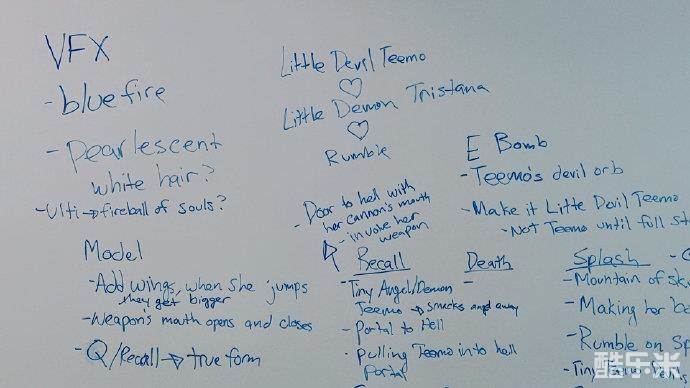 VFX
- blue fire
- pearlescent
white hair?
- Ulti → fireball of souls?
Model
- Add wings, when she jumps
they get bigger
- Weapon's mouth opens and closes
- Q/Recall → true form
Little Devil Teemo
♡
Little Demon Tristana
♡
Rumble
- Door to hell with
her cannon's mouth
- invoke her
weapon
Recall
- Tiny Angel/Demon
Teemo → smacks angel away
- Portal to Hell
- pulling Teemo into hell
portal
Death
E Bomb
- Teemo's devil orb
- Make it Little Devil Teemo
- Not Teemo until full st
Splash
- Mountain of sk
- Making her be
- Rumble on Sp
- Tiny Teemo Devils
酷乐米